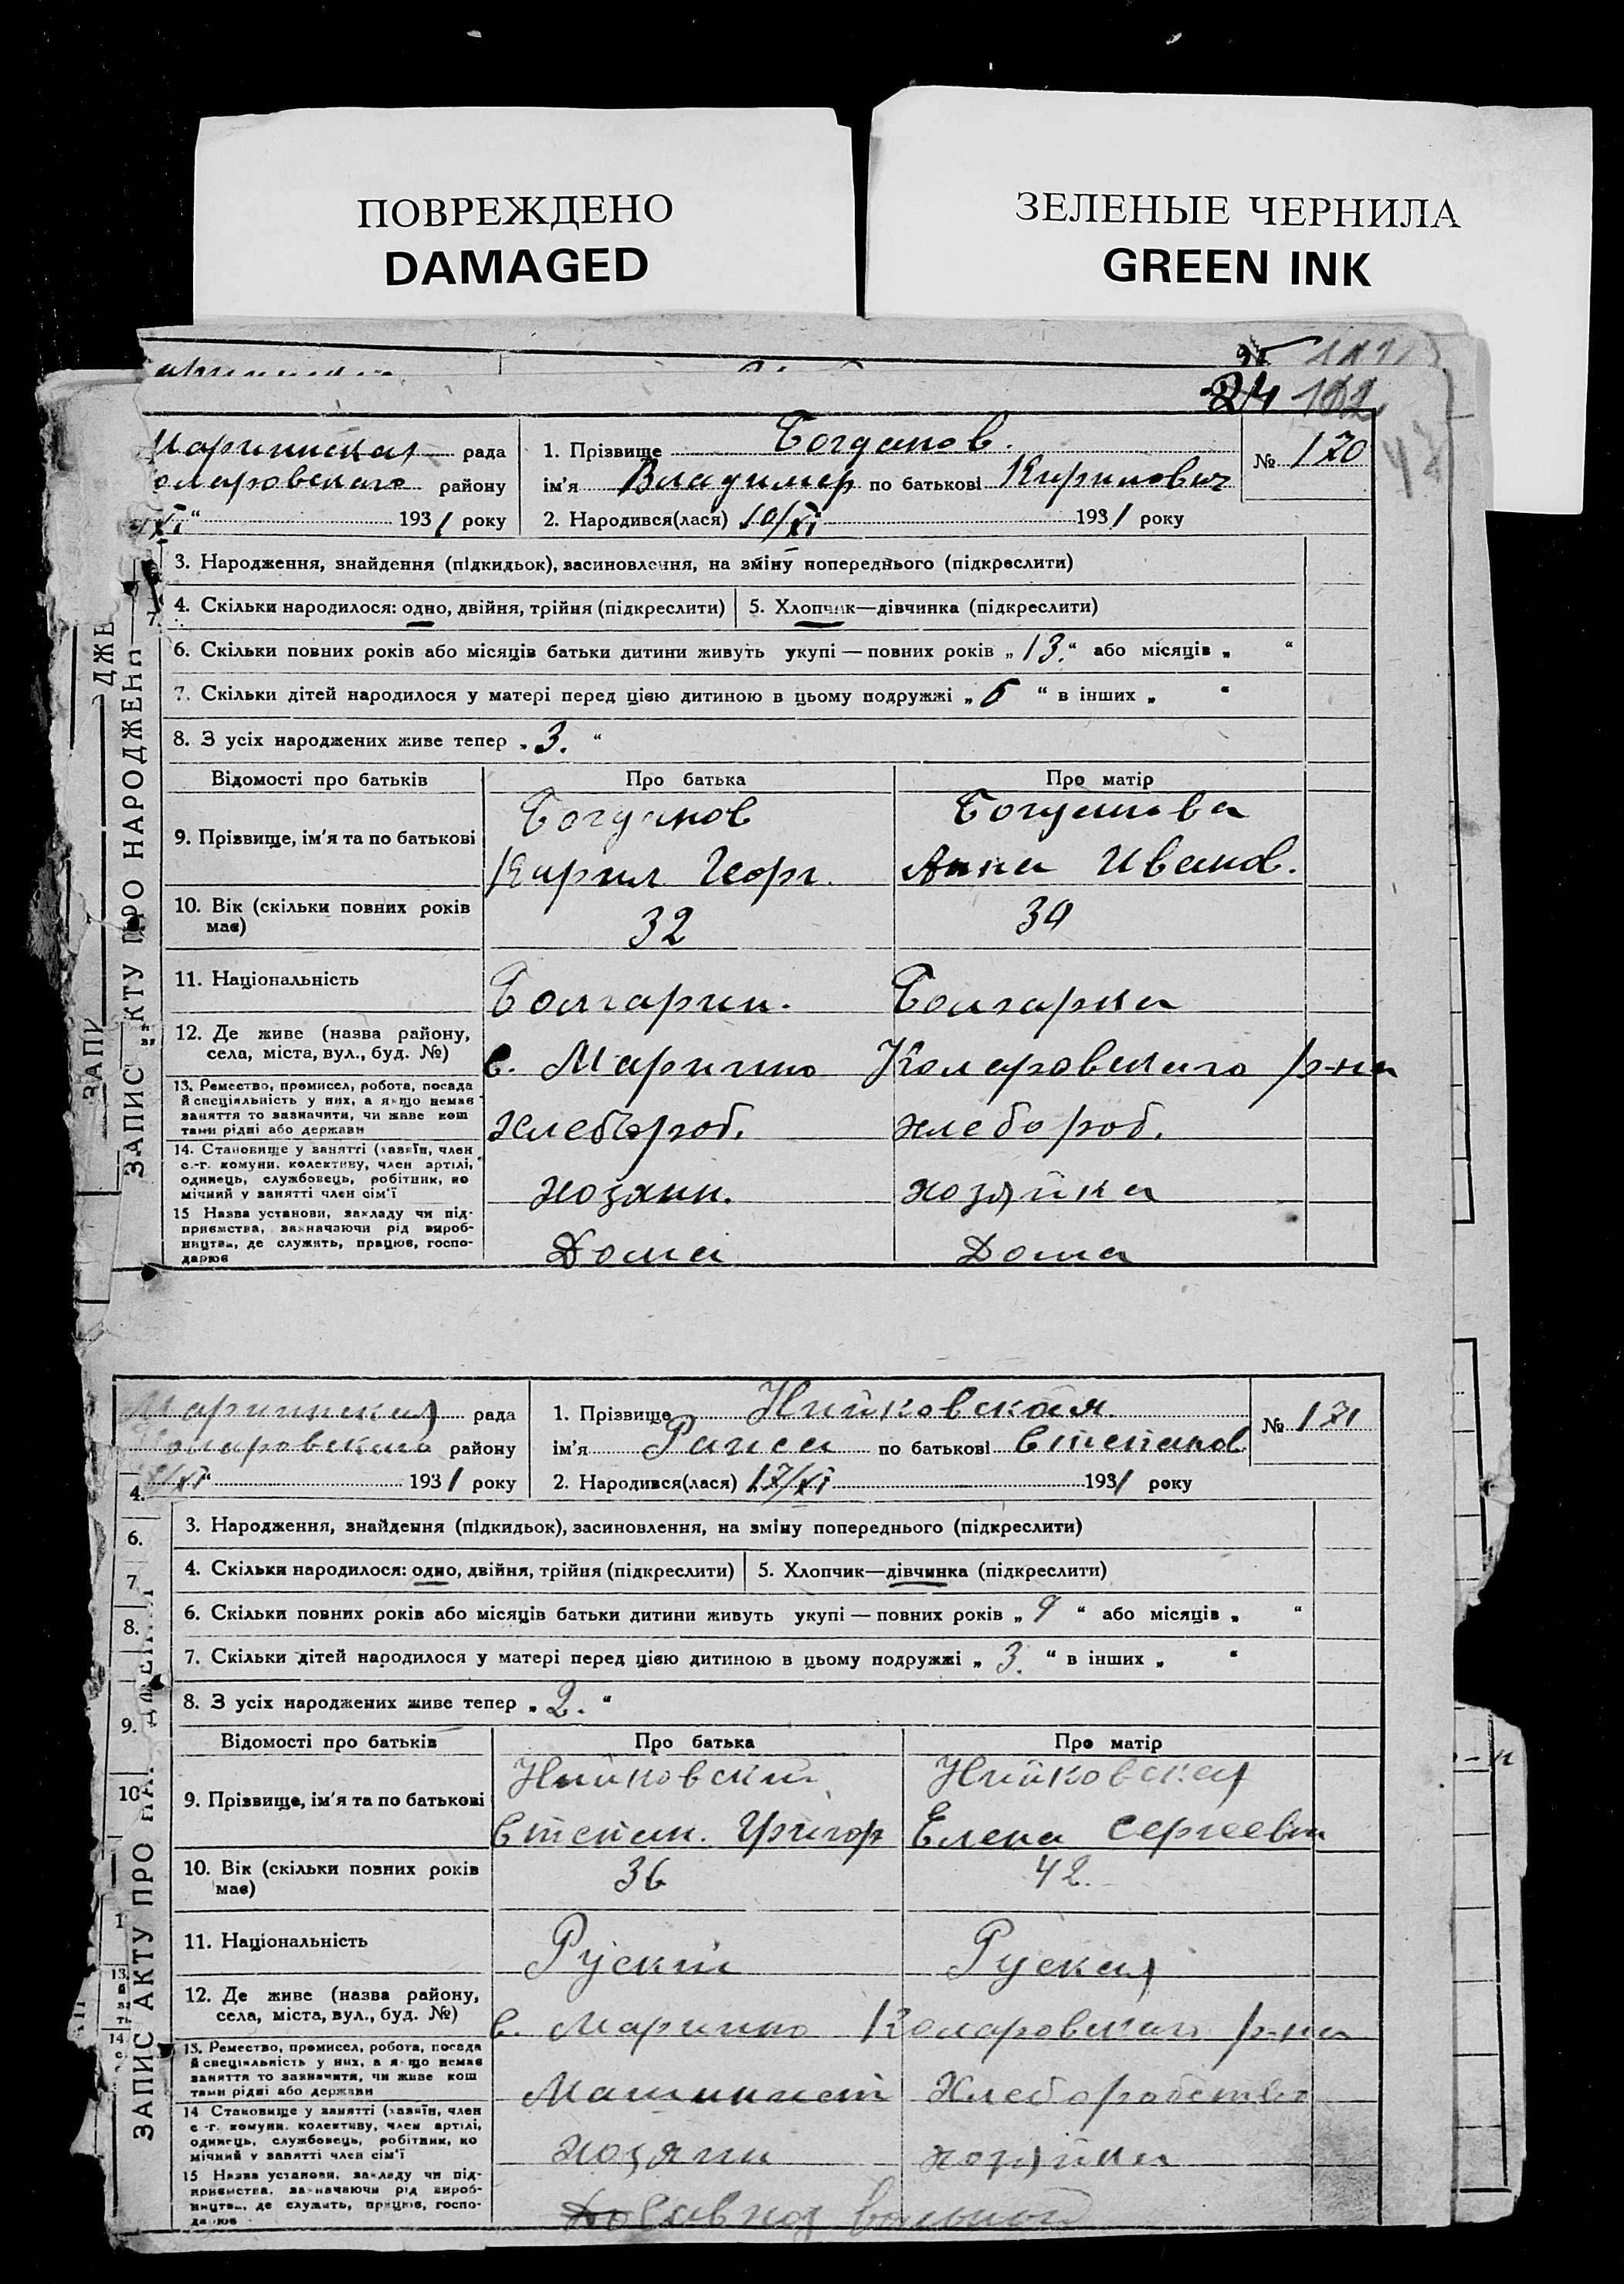 ПОВРЕЖДЕНО
DAMAGED
ЗЕЛЕНЫЕ ЧЕРНИЛА
GREEN INK
24 182
Маринская рада
оларовского району
XI" 1931 року
1. Прізвище Богданов.
ім'я Владимер по батькові Кирилович
2. Народився(лася) 10/XI 1931 року
№ 170
3. Народження, знайдення (підкидьок), васиновлення, на зміну попереднього (підкреслити)
4. Скільки народилося: одно, двійня, трійня (підкреслити)
5. Хлопчик—дівчинка (підкреслити)
6. Скільки повних років або місяців батьки дитини живуть укупі — повних років „ 13. “ або місяців „ “
7. Скільки дітей народилося у матері перед цією дитиною в цьому подружжі „ 6 “ в інших „ “
8. З усіх народжених живе тепер „ 3. “
Відомості про батьків
Про батька
Про матір
9. Прізвище, ім'я та по батькові
Богданов
Кирил Георг.
Богданова
Анна Иванов.
10. Вік (скільки повних років має)
32
30
11. Національність
Болгарин.
Болгарка
12. Де живе (назва району, села, міста, вул., буд. №)
с. Марино Коларовского р-на
13. Ремество, промисел, робота, посада
й спеціяльність у них, а якщо немає
заняття то зазначити, чи живе кош
тами рідні або держави
хлебороб.
хлебороб.
14. Становище у занятті (хазяїн, член
с.-г. комуни. колективу, член артілі,
одинець, службовець, робітник, по
мічний у занятті член сім'ї
хозяин.
хозяйка
15 Назва установи, закладу чи під-
приємства, зазначаючи рід вироб-
ництва, де служить, працює, госпо-
дарює
Дома
Дома
ЗАПИС АКТУ ПРО НАРОДЖЕНН
Маринская рада
Коларовского району
/XI" 1931 року
1. Прізвище Нийковская
ім'я Раиса по батькові Степанов
2. Народився(лася) 17/XI 1931 року
№ 171
3. Народження, знайдення (підкидьок), засиновлення, на зміну попереднього (підкреслити)
4. Скільки народилося: одно, двійня, трійня (підкреслити)
5. Хлопчик—дівчинка (підкреслити)
6. Скільки повних років або місяців батьки дитини живуть укупі — повних років „ 9 “ або місяців „ “
7. Скільки дітей народилося у матері перед цією дитиною в цьому подружжі „ 3. “ в інших „ “
8. З усіх народжених живе тепер „ 2. “
Відомості про батьків
Про батька
Про матір
9. Прізвище, ім'я та по батькові
Нийковский
Степан. Григор
Нийковская
Елена Сергеевн
10. Вік (скільки повних років має)
36
42.
11. Національність
Руский
Руская
12. Де живе (назва району, села, міста, вул., буд. №)
с. Марино Коларовского р-на
13. Ремество, промисел, робота, посада
й спеціяльність у них, а якщо немає
заняття то зазначити, чи живе кош
тами рідні або держави
Машинист
Хлеборобство
14 Становище у занятті (хазяїн, член
с.-г. комуни. колективу, член артілі,
одинець, службовець, робітник, по
мічний у занятті член сім'ї
хозяин
хозяйка
15 Назва установи, закладу чи під-
приємства, зазначаючи рід вироб-
ництва, де служить, працює, госпо-
дарює
ЗАПИС АКТУ ПРО НА